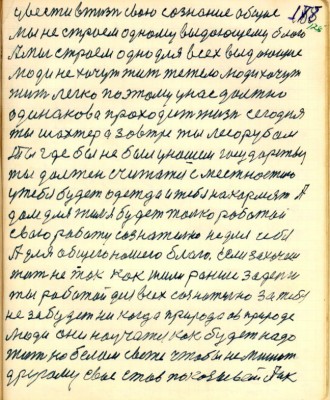 цвести в жизн свою сознание общие 188
мы не строем одному выдающему благо
А мы строем одно для всех выдающие
люди не хочут жит те те люди хочут
жит легко поэтому у нас должно
одинакова проходит жизн сегодня
ты шахтер а завтре ты лесорубам
Ты где бы не был у нашим государству
ты должен считатся с местностию
у тебя будет одежда и тебя накормлят А
дом для тибя будет толко работай
свою работу сознателно не для себя
А для общего нашего благо, если захочеш
жит не так как жили ранше заден и
ты работай для всех сознателно за тебя
не забудет ни когда природа ов природе
люди они научатся как будет надо
жит но белом свете чтобы не мешат
другому свае став показывай Как